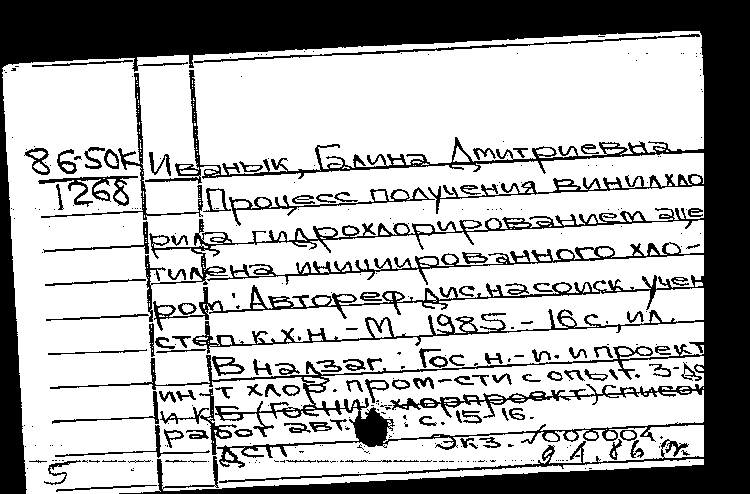 86-50К Иванык, Галина Дмитриевна.
1268 Процесс получения винилхло
рида гидрохлорированием аце
тилена, инициированного хло-
ром: Автореф. дис. на соиск. учен
степ. к.х.н. - М., 1985. - 16 с., ил.
В надзаг.: Гос. н.-и. и проект
ин-т хлор. пром-сти с опыт. з-до
и КБ (Госниихлорпроект) Список
работ авт.: с. 15-16.
ДСП. Экз. №000004.
5 9.1.86